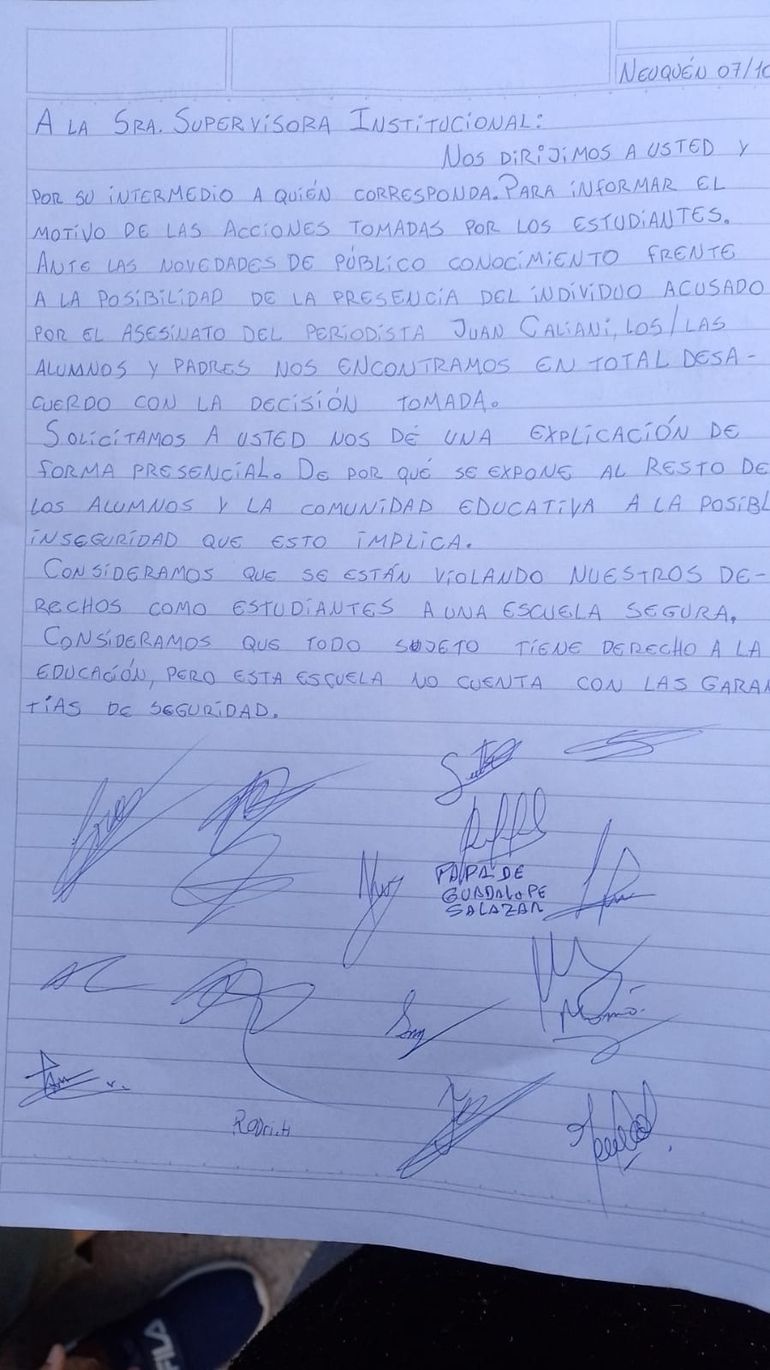 NEUQUÉN 07/10
A LA SRA. SUPERVISORA INSTITUCIONAL:
NOS DIRIJIMOS A USTED Y
POR SU INTERMEDIO A QUIÉN CORRESPONDA. PARA INFORMAR EL
MOTIVO DE LAS ACCIONES TOMADAS POR LOS ESTUDIANTES.
ANTE LAS NOVEDADES DE PÚBLICO CONOCIMIENTO FRENTE
A LA POSIBILIDAD DE LA PRESENCIA DEL INDIVIDUO ACUSADO
POR EL ASESINATO DEL PERIODISTA JUAN CALIANI, LOS/LAS
ALUMNOS Y PADRES NOS ENCONTRAMOS EN TOTAL DESA-
CUERDO CON LA DECISIÓN TOMADA.
SOLICITAMOS A USTED NOS DÉ UNA EXPLICACIÓN DE
FORMA PRESENCIAL. DE POR QUÉ SE EXPONE AL RESTO DE
LOS ALUMNOS Y LA COMUNIDAD EDUCATIVA A LA POSIBL
INSEGURIDAD QUE ESTO IMPLICA.
CONSIDERAMOS QUE SE ESTÁN VIOLANDO NUESTROS DE-
RECHOS COMO ESTUDIANTES A UNA ESCUELA SEGURA.
CONSIDERAMOS QUE TODO SUJETO TIENE DERECHO A LA
EDUCACIÓN, PERO ESTA ESCUELA NO CUENTA CON LAS GARAN
TÍAS DE SEGURIDAD.
PAPA DE
GUADALUPE
SALAZAR
FILA